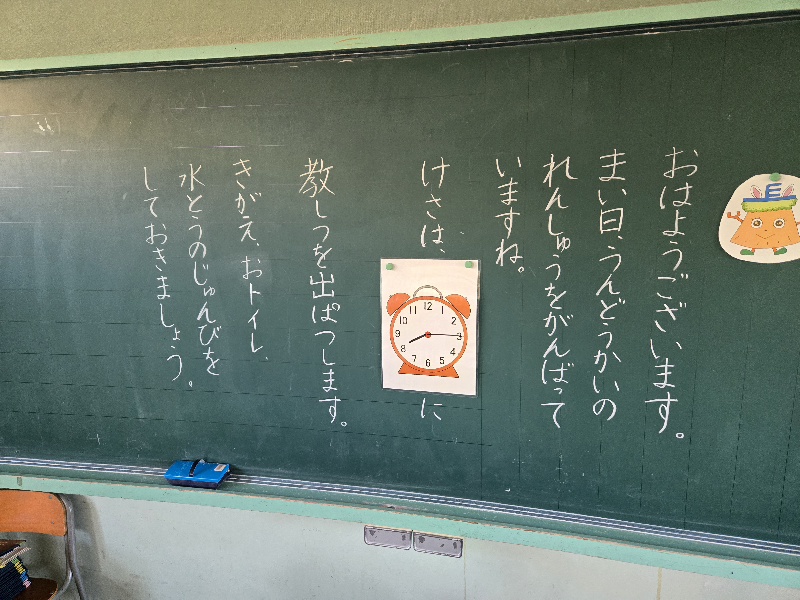 おはようございます。
まい日、うんどうかいの
れんしゅうをがんばって
いますね。
けさは、
12 1 2 3 4 5 6 7 8 9 10
に
教しつを出ぱつします。
きがえ、おトイレ、
水とうのじゅんびを
しておきましょう。